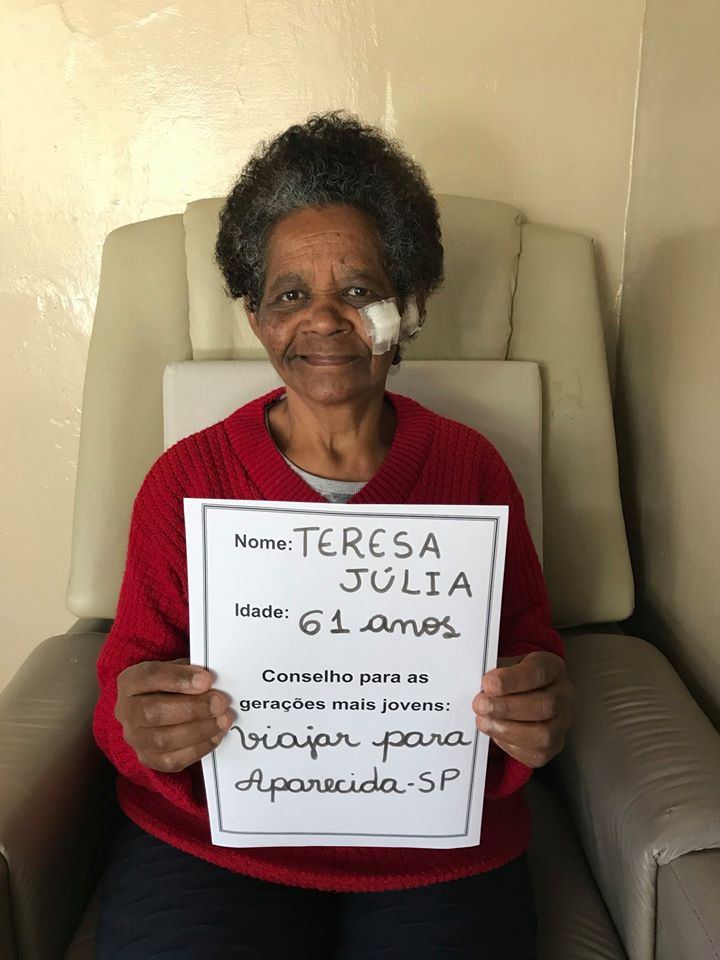 Nome: TERESA
JÚLIA
Idade: 61 anos
Conselho para as
gerações mais jovens:
viajar para
Aparecida-SP